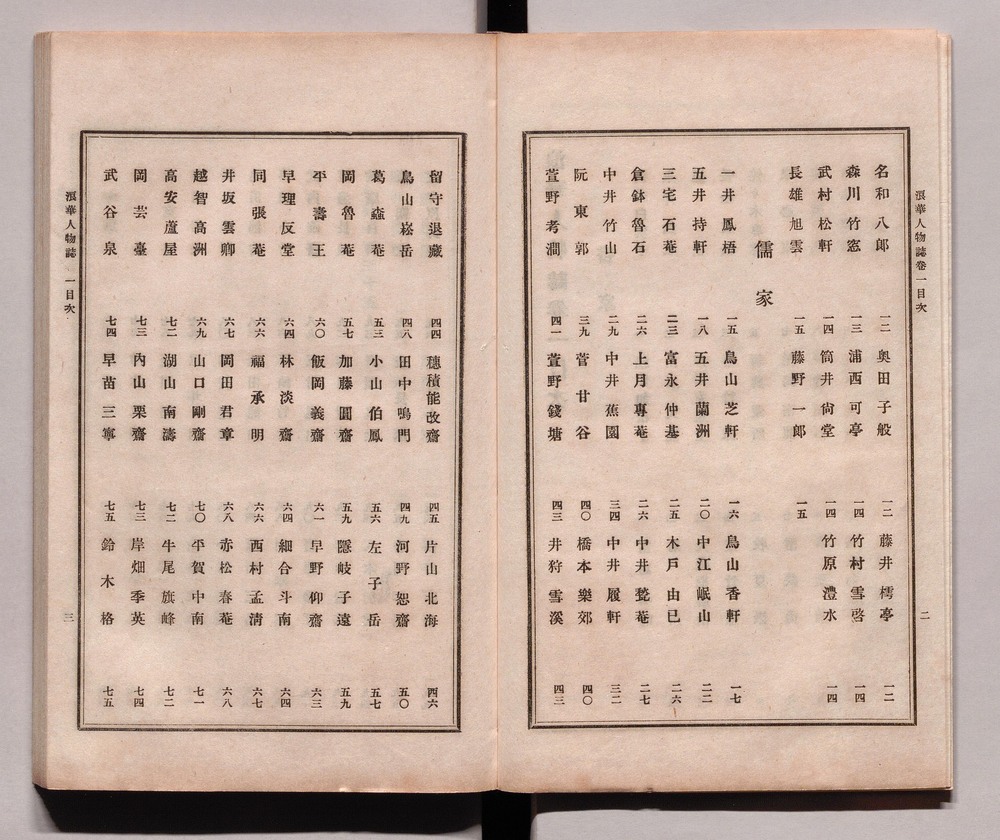 浪華人物誌卷一目次
名和八郎 一二 奥田子般 一二 藤井樗亭 一二
森川竹窓 一三 浦西可亭 一四 竹村雪啓 一四
武村松軒 一四 筒井尙堂 一四 竹原澧水 一四
長雄旭雲 一五 藤野一郎 一五
儒家
一井鳳梧 一五 鳥山芝軒 一六 鳥山香軒 一七
五井持軒 一八 五井蘭洲 二〇 中江岷山 二二
三宅石菴 二三 富永仲基 二五 木戸由已 二六
倉鉢魯石 二六 上月專菴 二六 中井甃菴 二七
中井竹山 二九 中井蕉園 三四 中井履軒 三二
阮東郭 三九 菅甘谷 四〇 橋本樂郊 四〇
萱野考澗 四一 萱野錢塘 四三 井狩雪溪 四三
二
留守退藏 四四 穗積能改齋 四五 片山北海 四六
鳥山崧岳 四八 田中鳴門 四九 河野恕齋 五〇
葛蠡菴 五三 小山伯鳳 五六 左子岳 五七
岡魯菴 五七 加藤圓齋 五九 隱岐子遠 五九
平壽王 六〇 飯岡義齋 六一 早野仰齋 六三
早理反堂 六四 林淡齋 六四 細合斗南 六四
同張菴 六六 福承明 六六 西村孟淸 六七
井坂雲卿 六七 岡田君章 六八 赤松春菴 六八
越智高洲 六九 山口剛齋 七〇 平賀中南 七一
高安蘆屋 七二 湖山南濤 七二 牛尾旗峰 七二
岡芸臺 七三 內山栗齋 七三 岸畑季英 七四
武谷泉 七四 早苗三寧 七五 鈴木格 七五
浪華人物誌一目次
三